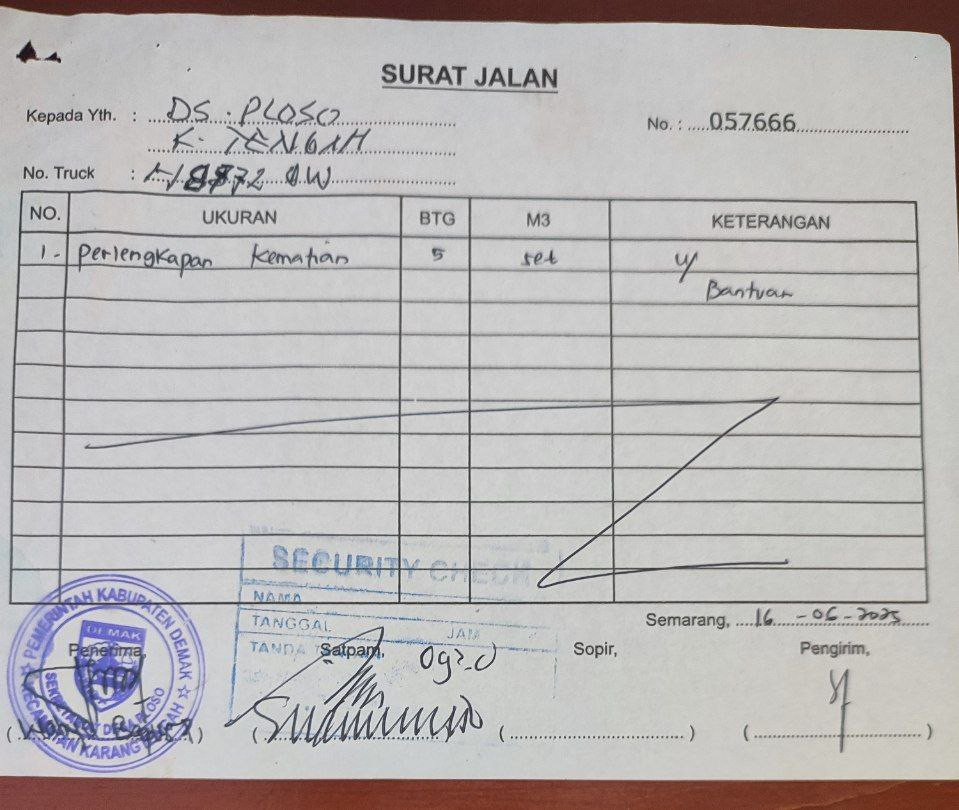 SURAT JALAN
Kepada Yth. : DS. PLOSO
K. TENGAH
No. : 057666
No. Truck : H 8872 OW
NO. UKURAN BTG M3 KETERANGAN
1. Perlengkapan Kematian 5 set u/
Bantuan
SECURITY CHECK
NAMA
TANGGAL JAM
TANDA
Semarang, 16 - 06 - 2025
Penerima, Satpam, Sopir, Pengirim,
PEMERINTAH KABUPATEN DEMAK
DEMAK
KECAMATAN KARANGTENGAH